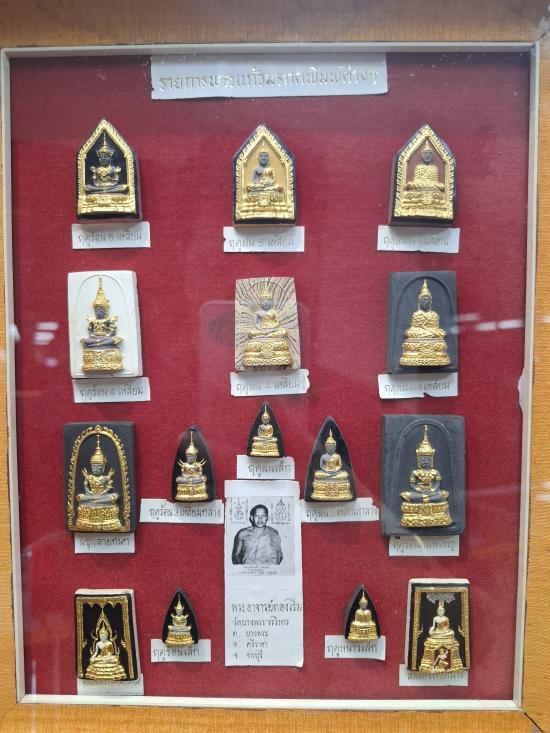 รายการพระแก้วมรกตพิมพ์ต่างๆ
ฤดูร้อน 5 เหลี่ยม
ฤดูฝน 5 เหลี่ยม
ฤดูหนาว 5 เหลี่ยม
ฤดูร้อน 4 เหลี่ยม
ฤดูฝน 4 เหลี่ยม
ฤดูหนาว 4 เหลี่ยม
ฤดูฝนเล็ก
ฤดูร้อน 3 เหลี่ยมกลาง
ฤดูฝน 3 เหลี่ยมกลาง
พระอาจารย์ทองเริ่ม
วัดบางพระวรวิหาร
ต. บางพระ
อ. ศรีราชา
จ. ชลบุรี
ฤดูร้อนเล็ก
ฤดูหนาวเล็ก